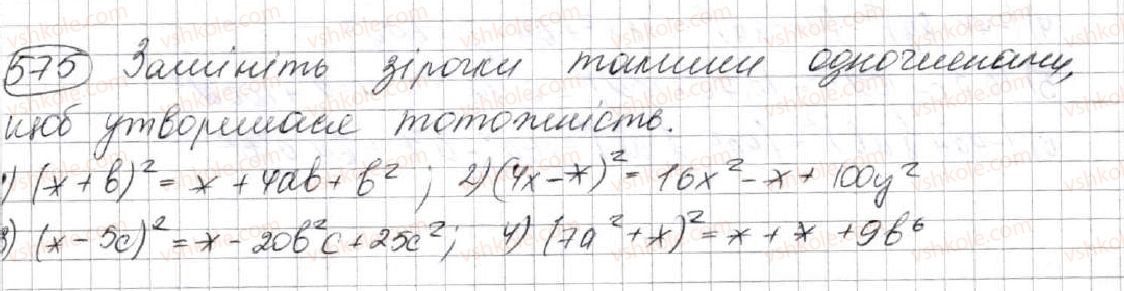 575 Замініть зірочки такими одночленами,
щоб утворилася тотожність.
1) (* + b)² = * + 4ab + b²; 2) (4x - *)² = 16x² - * + 100y²
3) (* - 5c)² = * - 20b²c + 25c²; 4) (7a² + *)² = * + * + 9b⁶